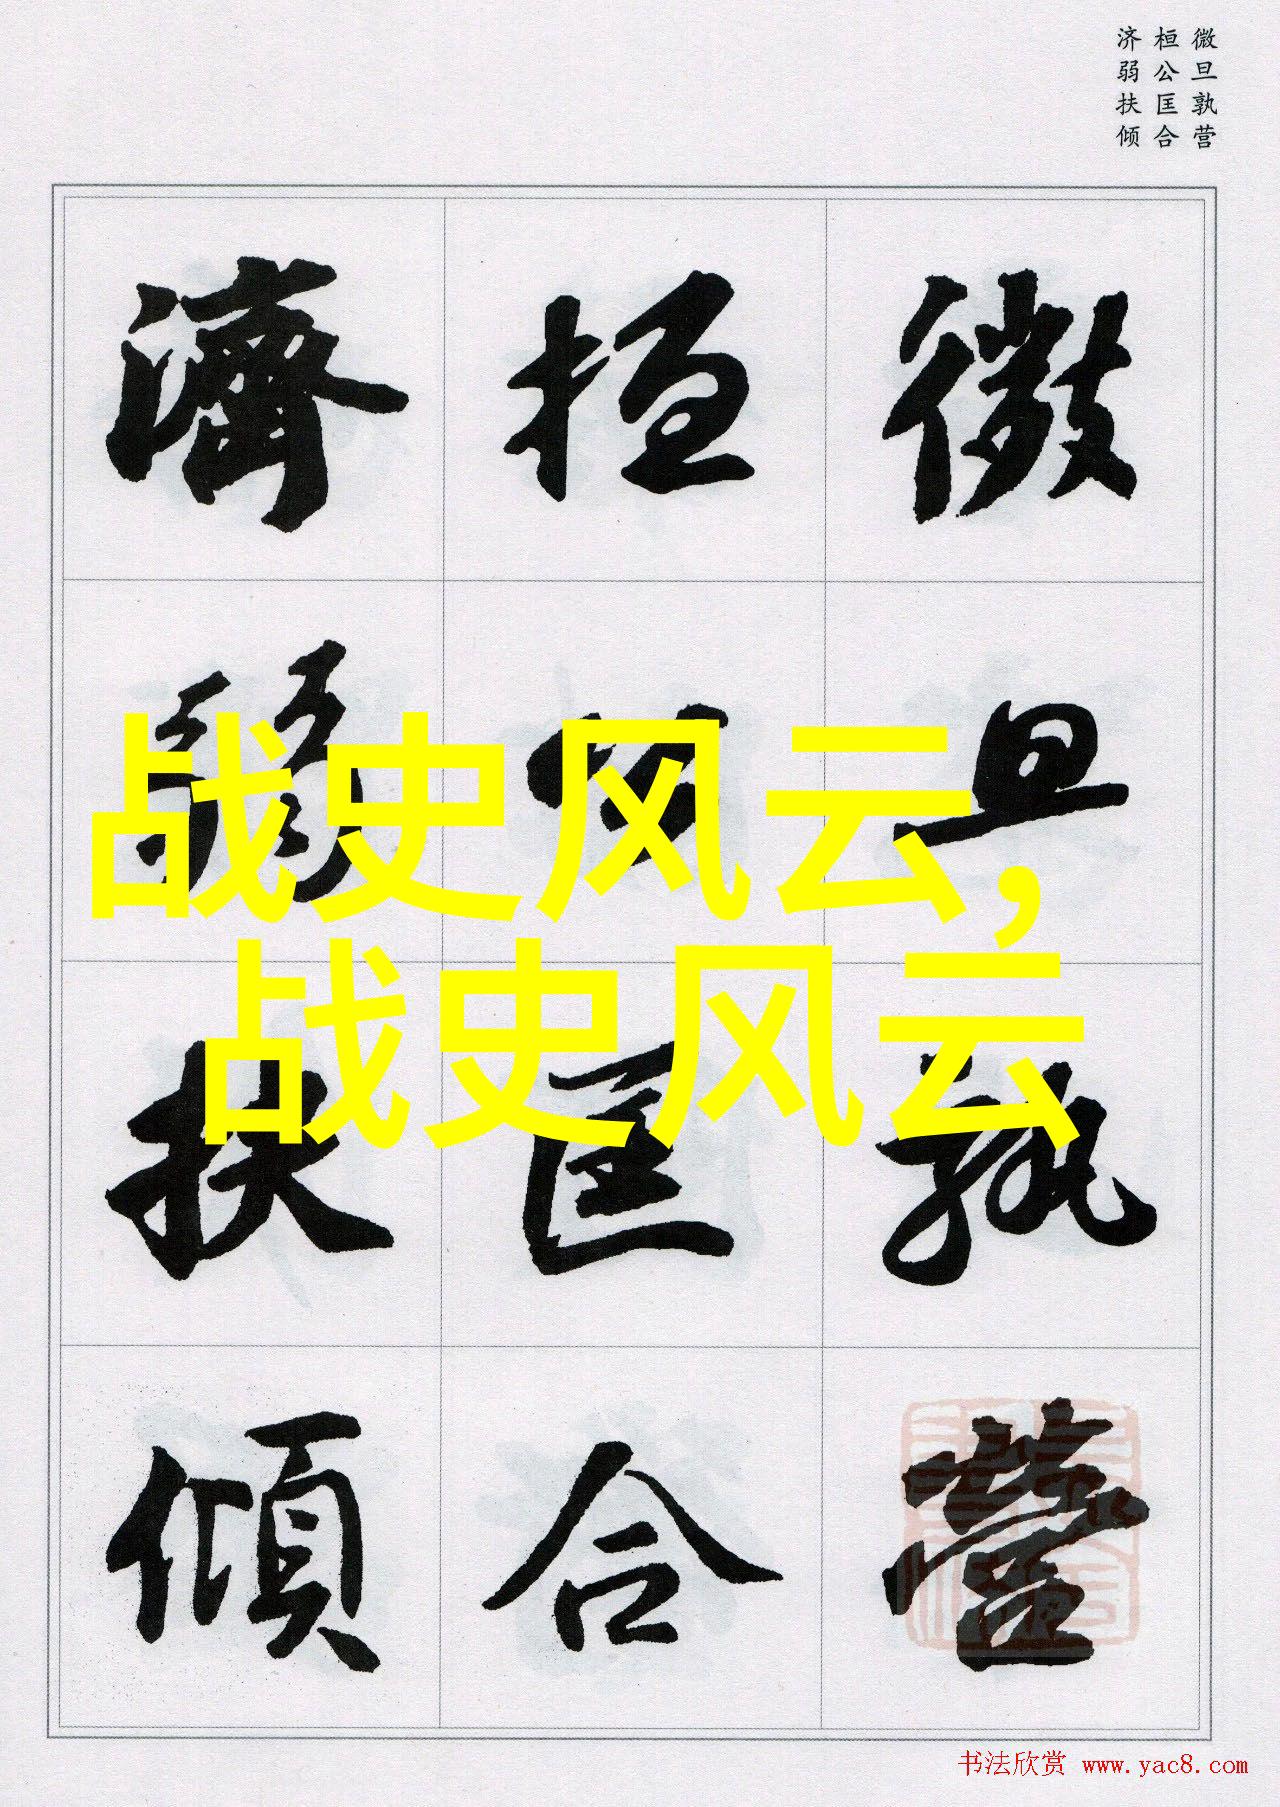 微旦孰营
桓公匡合
济弱扶倾
微旦孰營
桓公匡合
濟弱扶傾
战史风云,
战史风云
书法欣赏 www.yac8.com